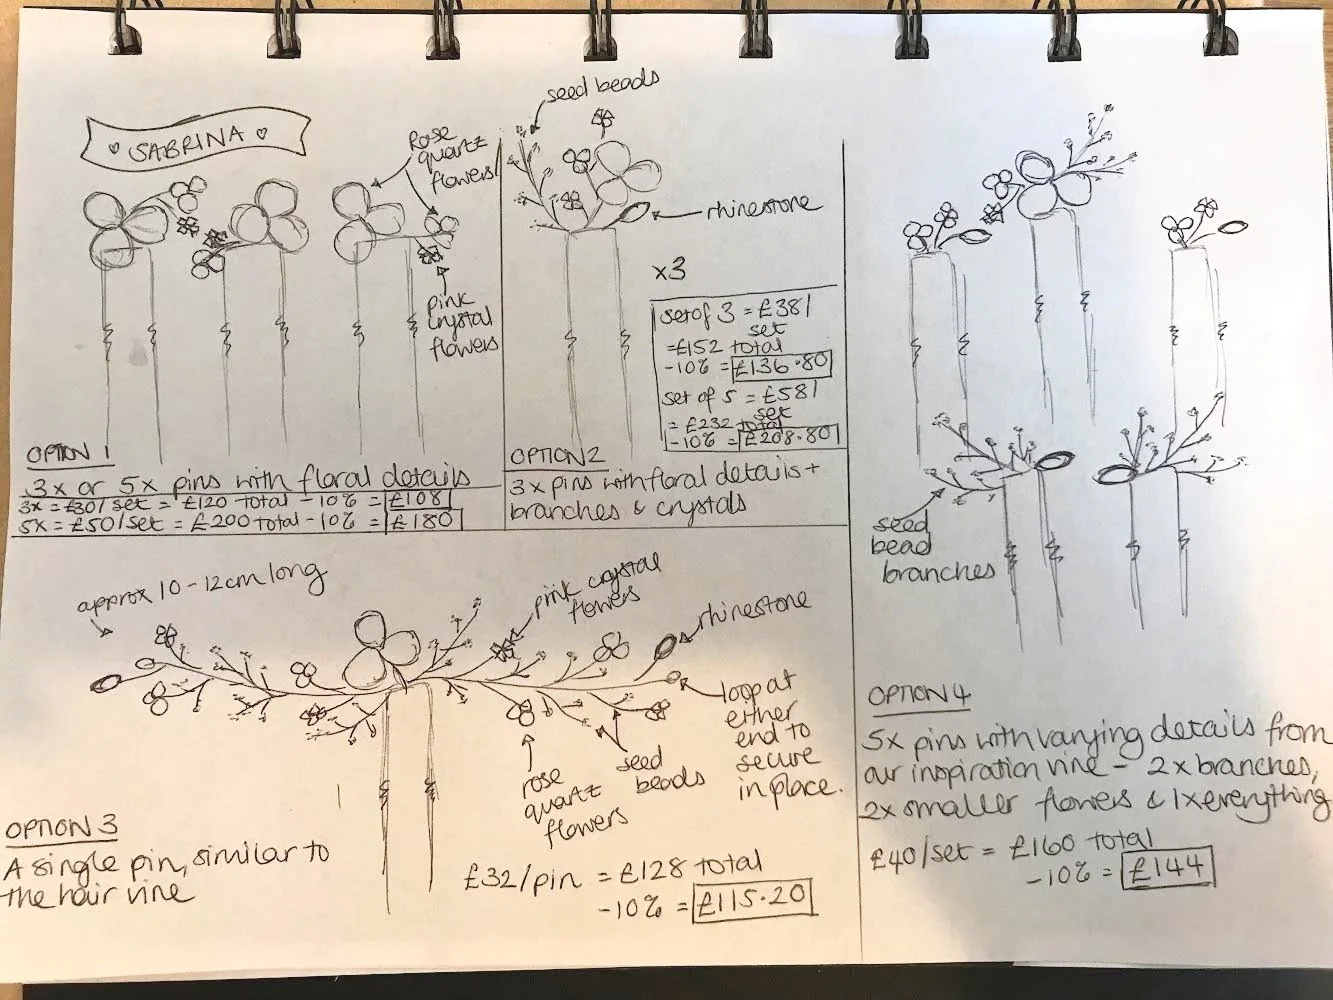 ♡ SABRINA ♡
Rose
quartz
flowers
pink
crystal
flowers
OPTION 1
3x or 5x pins with floral details
3x = £30/set = £120 total -10% = £108
5x = £50/set = £200 total -10% = £180
seed beads
rhinestone
x3
set of 3 = £38/
set
= £152 total
-10% = £136.80
set of 5 = £58/
set
= £232 total
-10% = £208.80
OPTION 2
3x pins with floral details +
branches & crystals
approx 10-12cm long
pink crystal
flowers
rhinestone
loop at
either
end to
secure
in place.
seed
beads
rose
quartz
flowers
OPTION 3
A single pin, similar to
the hair vine
£32/pin = £128 total
-10% = £115.20
seed
bead
branches
OPTION 4
5x pins with varying details from
our inspiration vine - 2x branches,
2x smaller flowers & 1x everything
£40/set = £160 total
-10% = £144